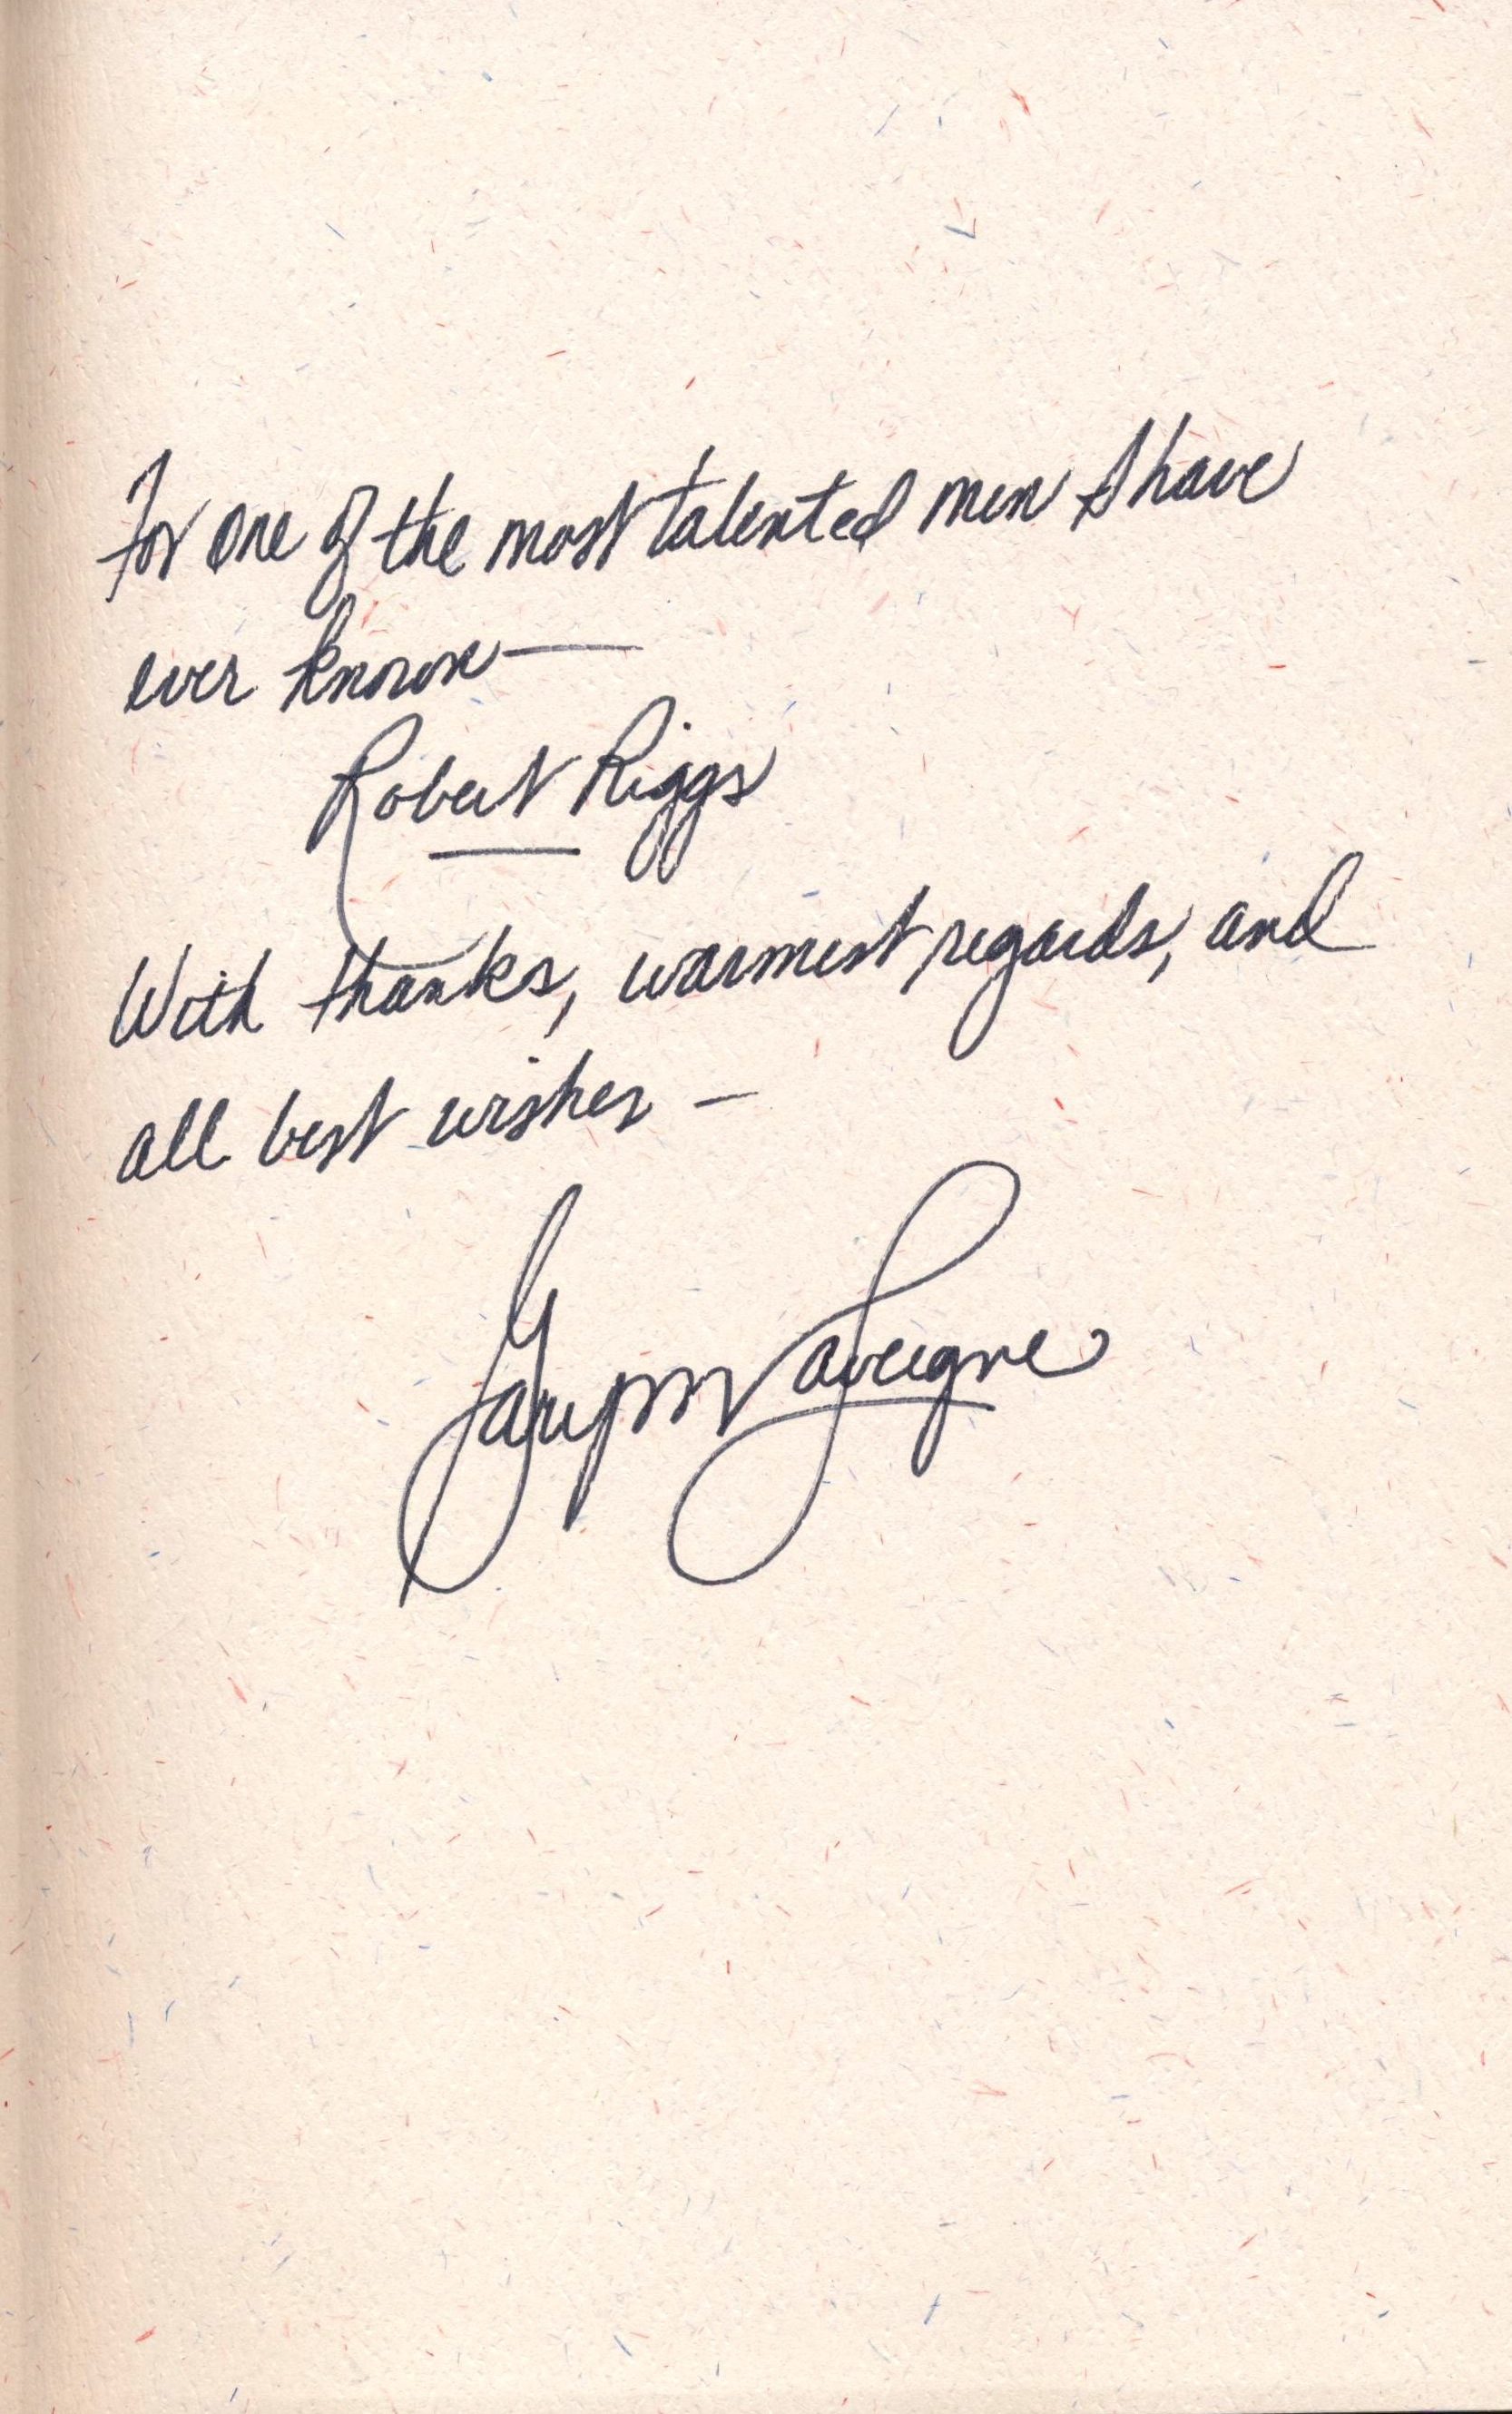 For one of the most talented men I have
ever known—
Robert Riggs
With thanks, warmest regards, and
all best wishes –
Gary M Lavergne